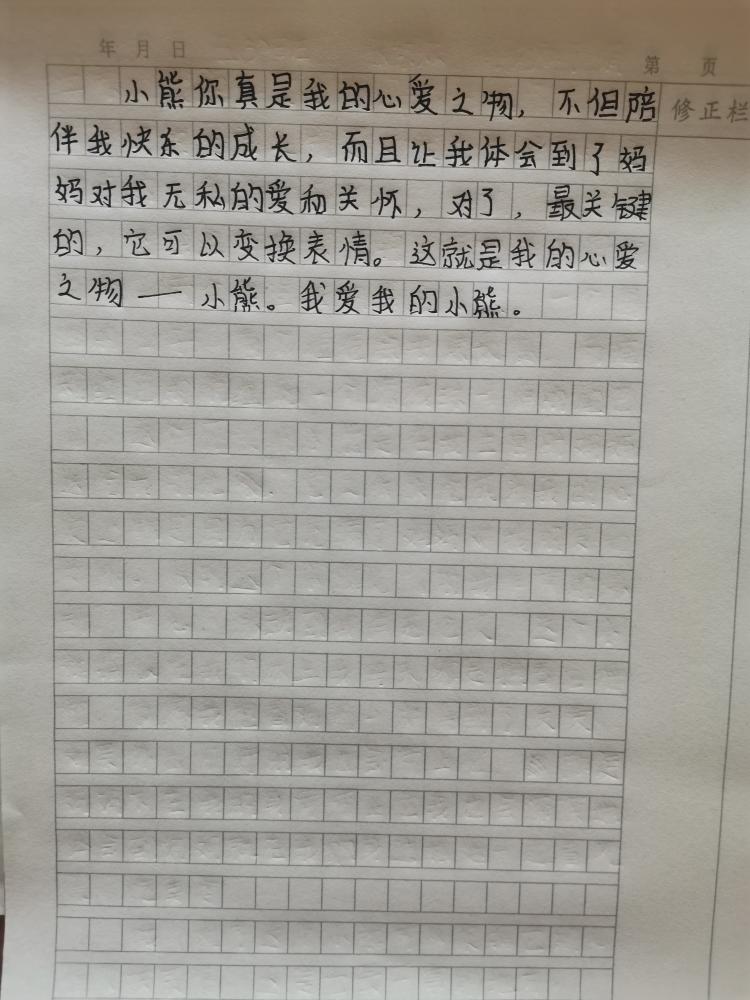 年 月 日
第 页
修正栏
小熊你真是我的心爱之物，不但陪
伴我快乐的成长，而且让我体会到了妈
妈对我无私的爱和关怀，对了，最关键
的，它可以变换表情。这就是我的心爱
之物——小熊。我爱我的小熊。